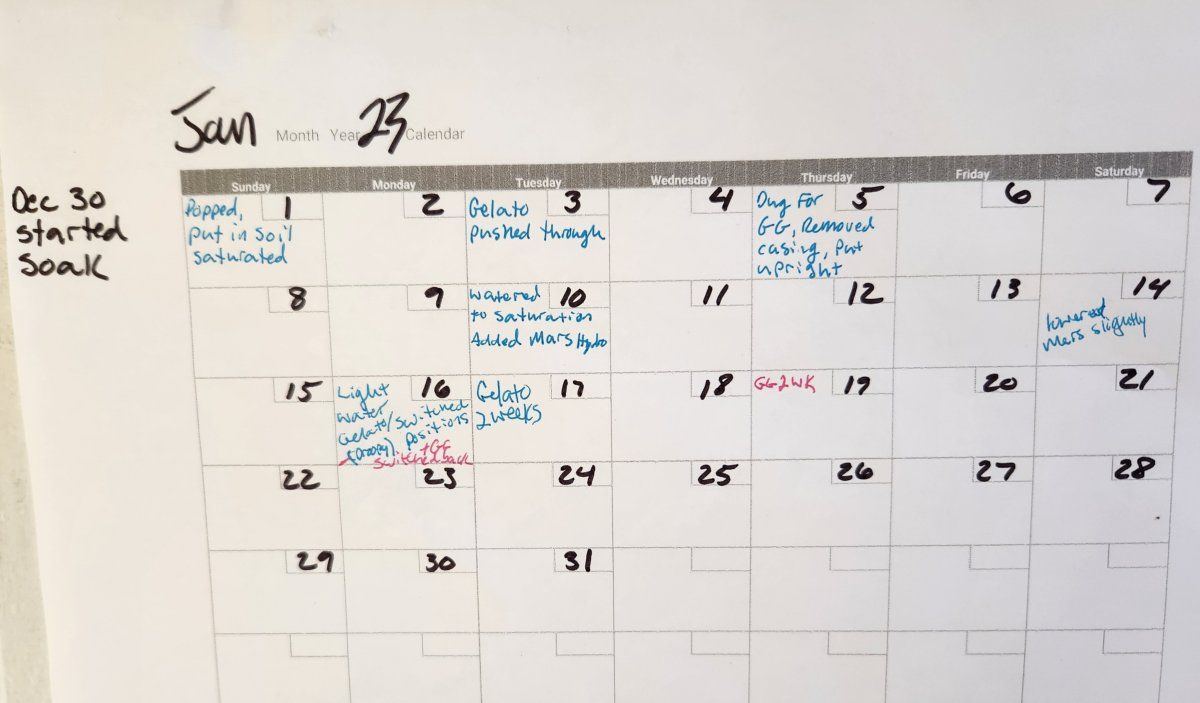 Jan Month Year 23 Calendar
Dec 30
started
soak
Sunday Monday Tuesday Wednesday Thursday Friday Saturday
1
Popped,
put in soil
saturated
2
3
Gelato
pushed through
4
5
Dug For
GG, Removed
casing, Put
upright
6
7
8
9
10
watered
to saturation
Added Mars Hydro
11
12
13
14
lowered
Mars slightly
15
16
Light
water
Gelato/switched
(Droopy). positions
+GG
switched back
17
Gelato
2 weeks
18
19
GG 2WK
20
21
22
23
24
25
26
27
28
29
30
31